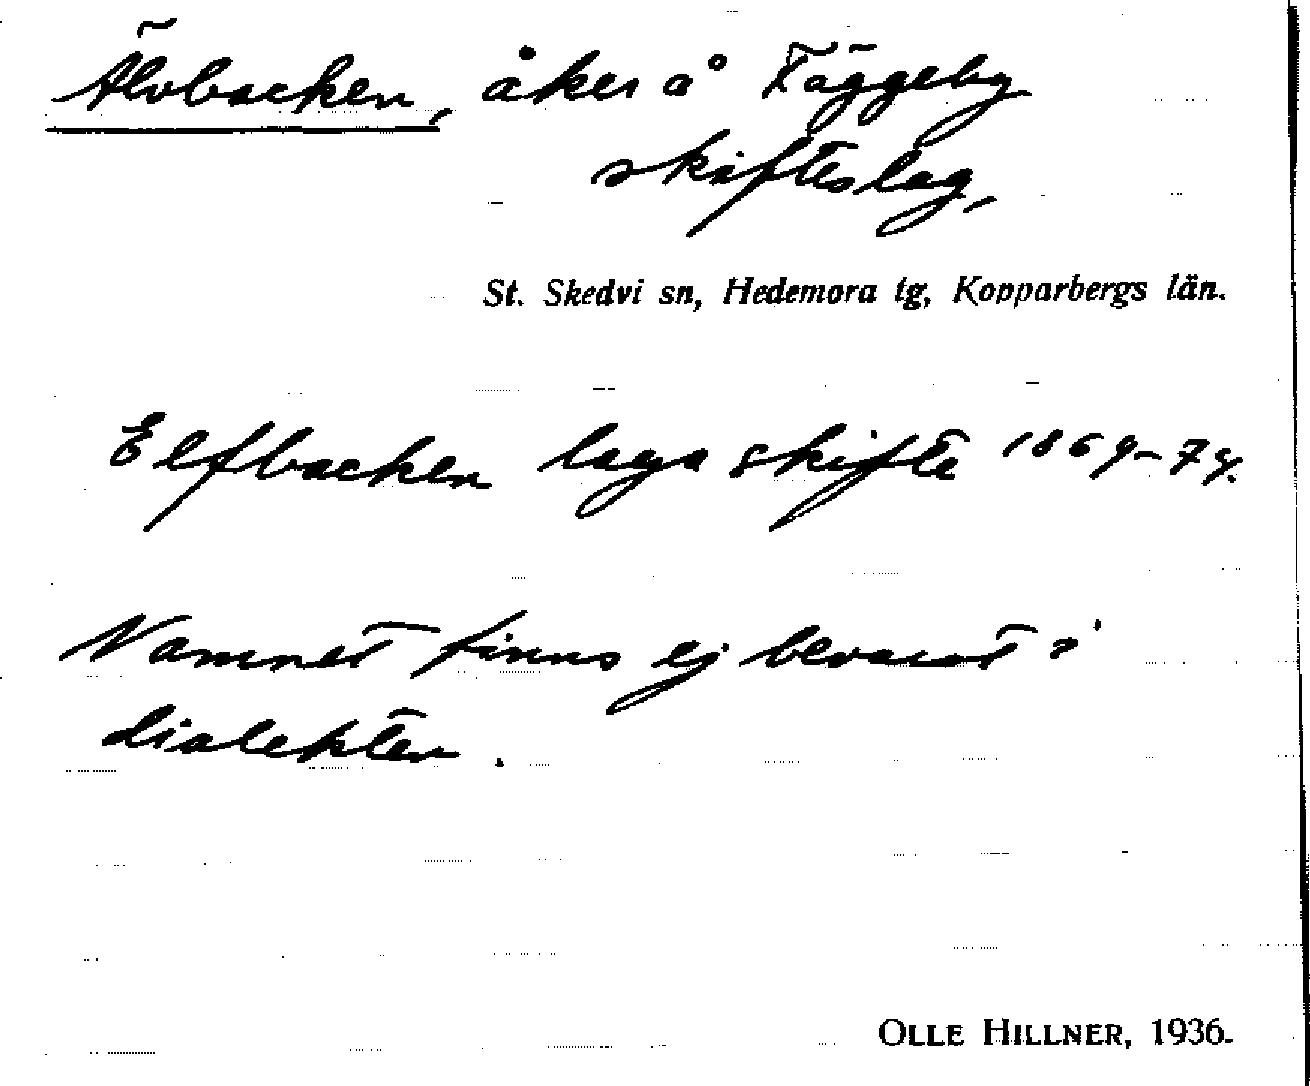 Älvbacken, åker å Täggeby
skifteslag,
St. Skedvi sn, Hedemora tg, Kopparbergs län.
Elfbacken laga skifte 1869-74.
Namnet finns ej bevarat i
dialekten.
OLLE HILLNER, 1936.